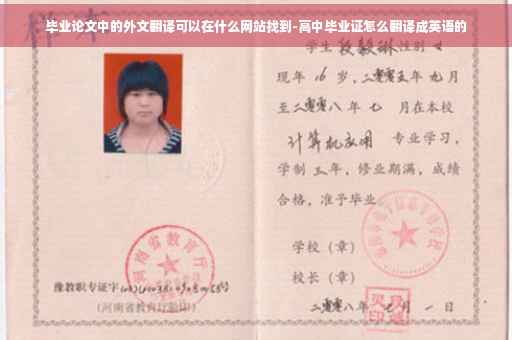 毕业论文中的外文翻译可以在什么网站找到-高中毕业证怎么翻译成英语的
样本
学生段毅琳性别女
现年16岁,二零零五年九月
至二零零八年七月在本校
计算机应用专业学习,
学制三年,修业期满,成绩
合格,准予毕业
学校（章）
校长（章）
二零零八年七月一日
河南省教育厅
豫教职专证字
(河南省教育厅验印)